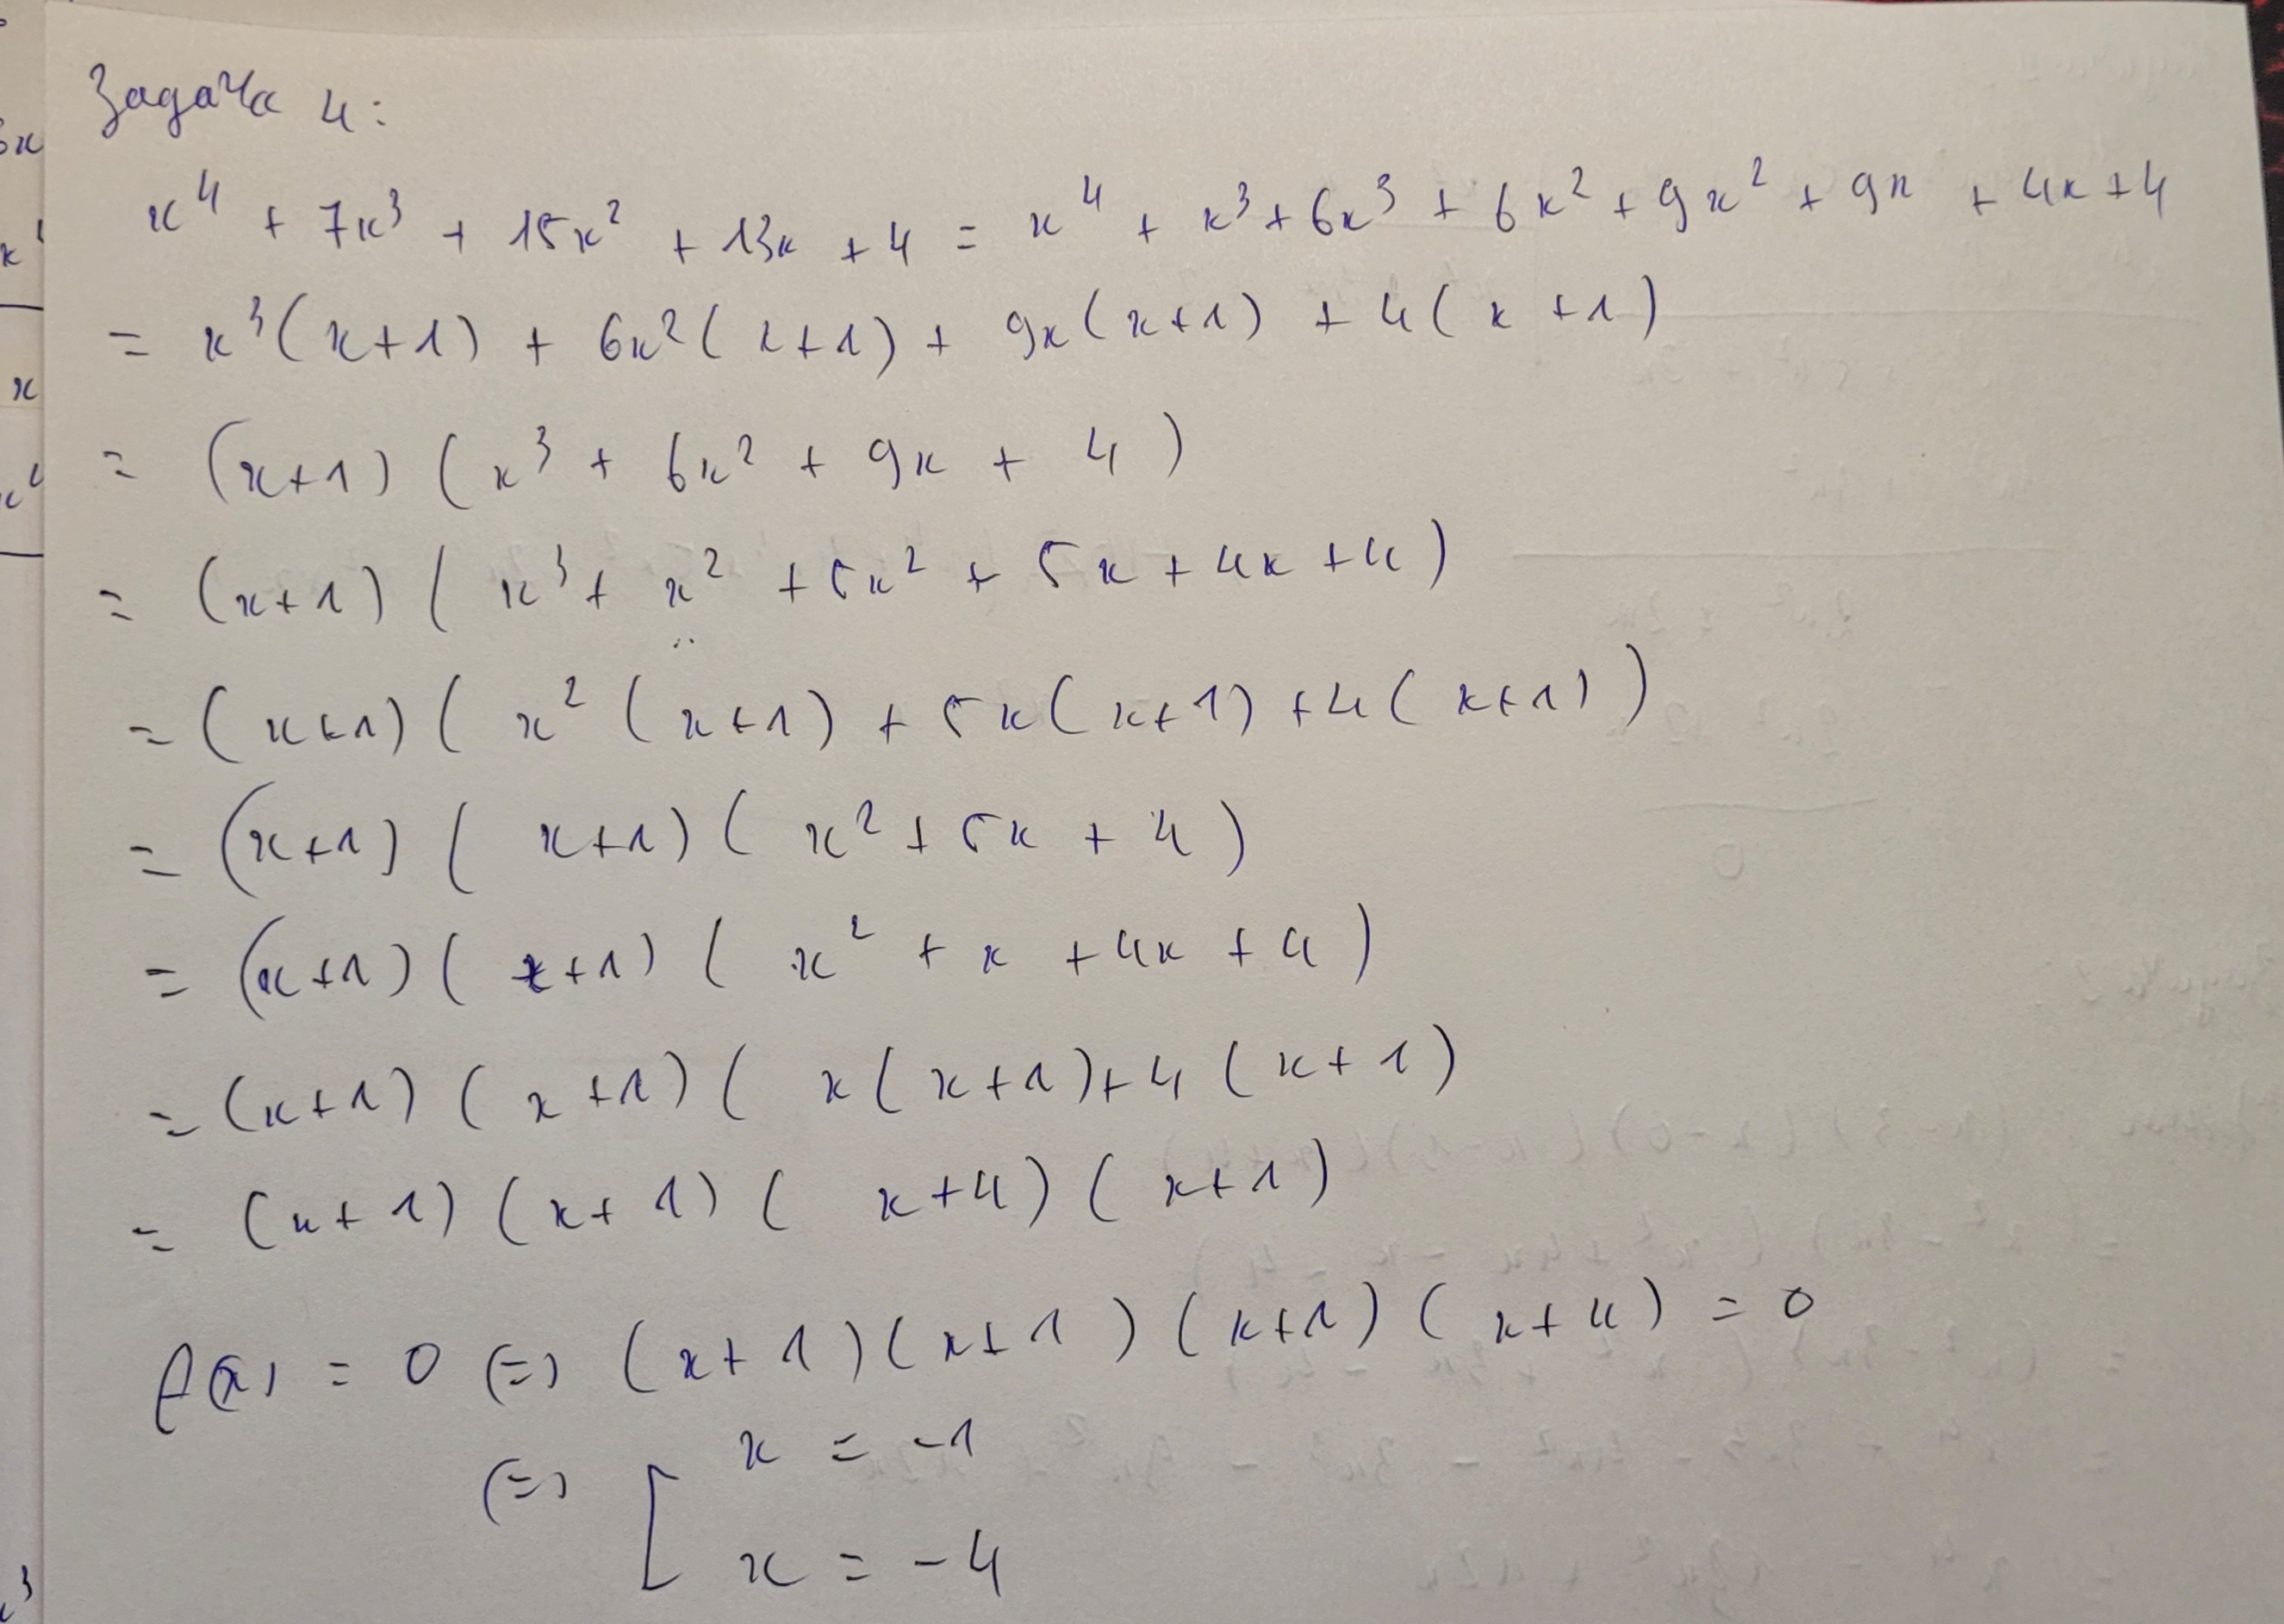 Задача 4:
x⁴ + 7x³ + 15x² + 13x + 4 = x⁴ + x³ + 6x³ + 6x² + 9x² + 9x + 4x + 4
= x³(x+1) + 6x²(x+1) + 9x(x+1) + 4(x+1)
= (x+1)(x³ + 6x² + 9x + 4)
= (x+1)(x³ + x² + 5x² + 5x + 4x + 4)
= (x+1)(x²(x+1) + 5x(x+1) + 4(x+1))
= (x+1)(x+1)(x² + 5x + 4)
= (x+1)(x+1)(x² + x + 4x + 4)
= (x+1)(x+1)(x(x+1) + 4(x+1)
= (x+1)(x+1)(x+4)(x+1)
f(x) = 0 (=) (x+1)(x+1)(x+1)(x+4) = 0
(=) [ x = -1
x = -4